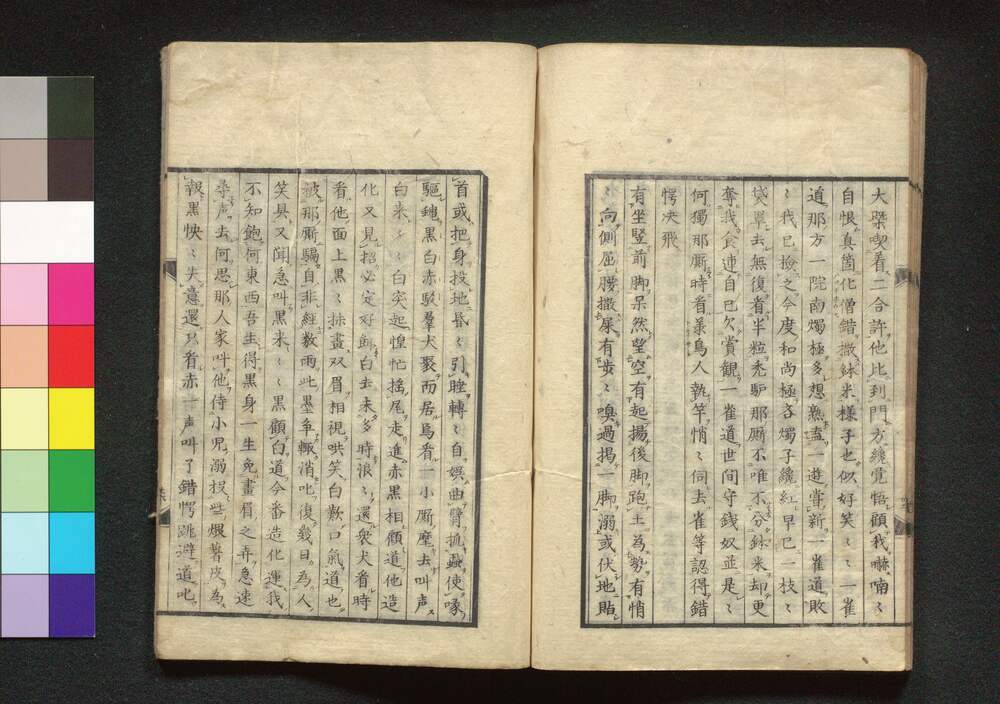 大槩喫着二合許他比到門方纔覚悟顧我嚇喃〻
自恨真箇化僧錯撒鉢米様子也似好笑〻〻一雀
道那方一院南燭極多想熟盍一遊嘗新一雀道敗
〻我已撿之今度和尚極吝燭子纔紅早已一枝〻
貸睪去無復着半粒禿驢那厮不唯不分鉢米却更
奪我食連自已欠賞観一雀道世間守銭奴並是〻
何獨那厮時看羕鳥人執竿悄〻伺去雀等認得錯
愕决飛
有坐竪前脚呆然望空有起揚後脚跑土為勢有悄
〻向側屈腰撒屎有歩〻嗅過掲一脚溺或伏地貼
首或把身投地昏〻引睡轉〻自嫇曲臂抓蝨使喙
驅蠅黒白赤駁羣犬聚而居焉看一小厮麾去叫声
白来〻〻白突起惶忙揺尾走進赤黒相顧道他造
化又見招必定好餌白去未多時浪〻還衆犬看時
看他面上黒〻抹畫双眉相視哄笑白歎口氣道也
被那厮騙自非経数雨此墨争輙消叱復幾日為人
笑具又聞急叫黒来〻〻黒顧白道今番造化運我
不知飽何東西吾生得黒身一生免畫眉之弄急速
牵声去何思那人家叫他侍小児溺投些煨薯皮為
報黒怏〻失意還只看赤一声叫了錯愕跳避道叱